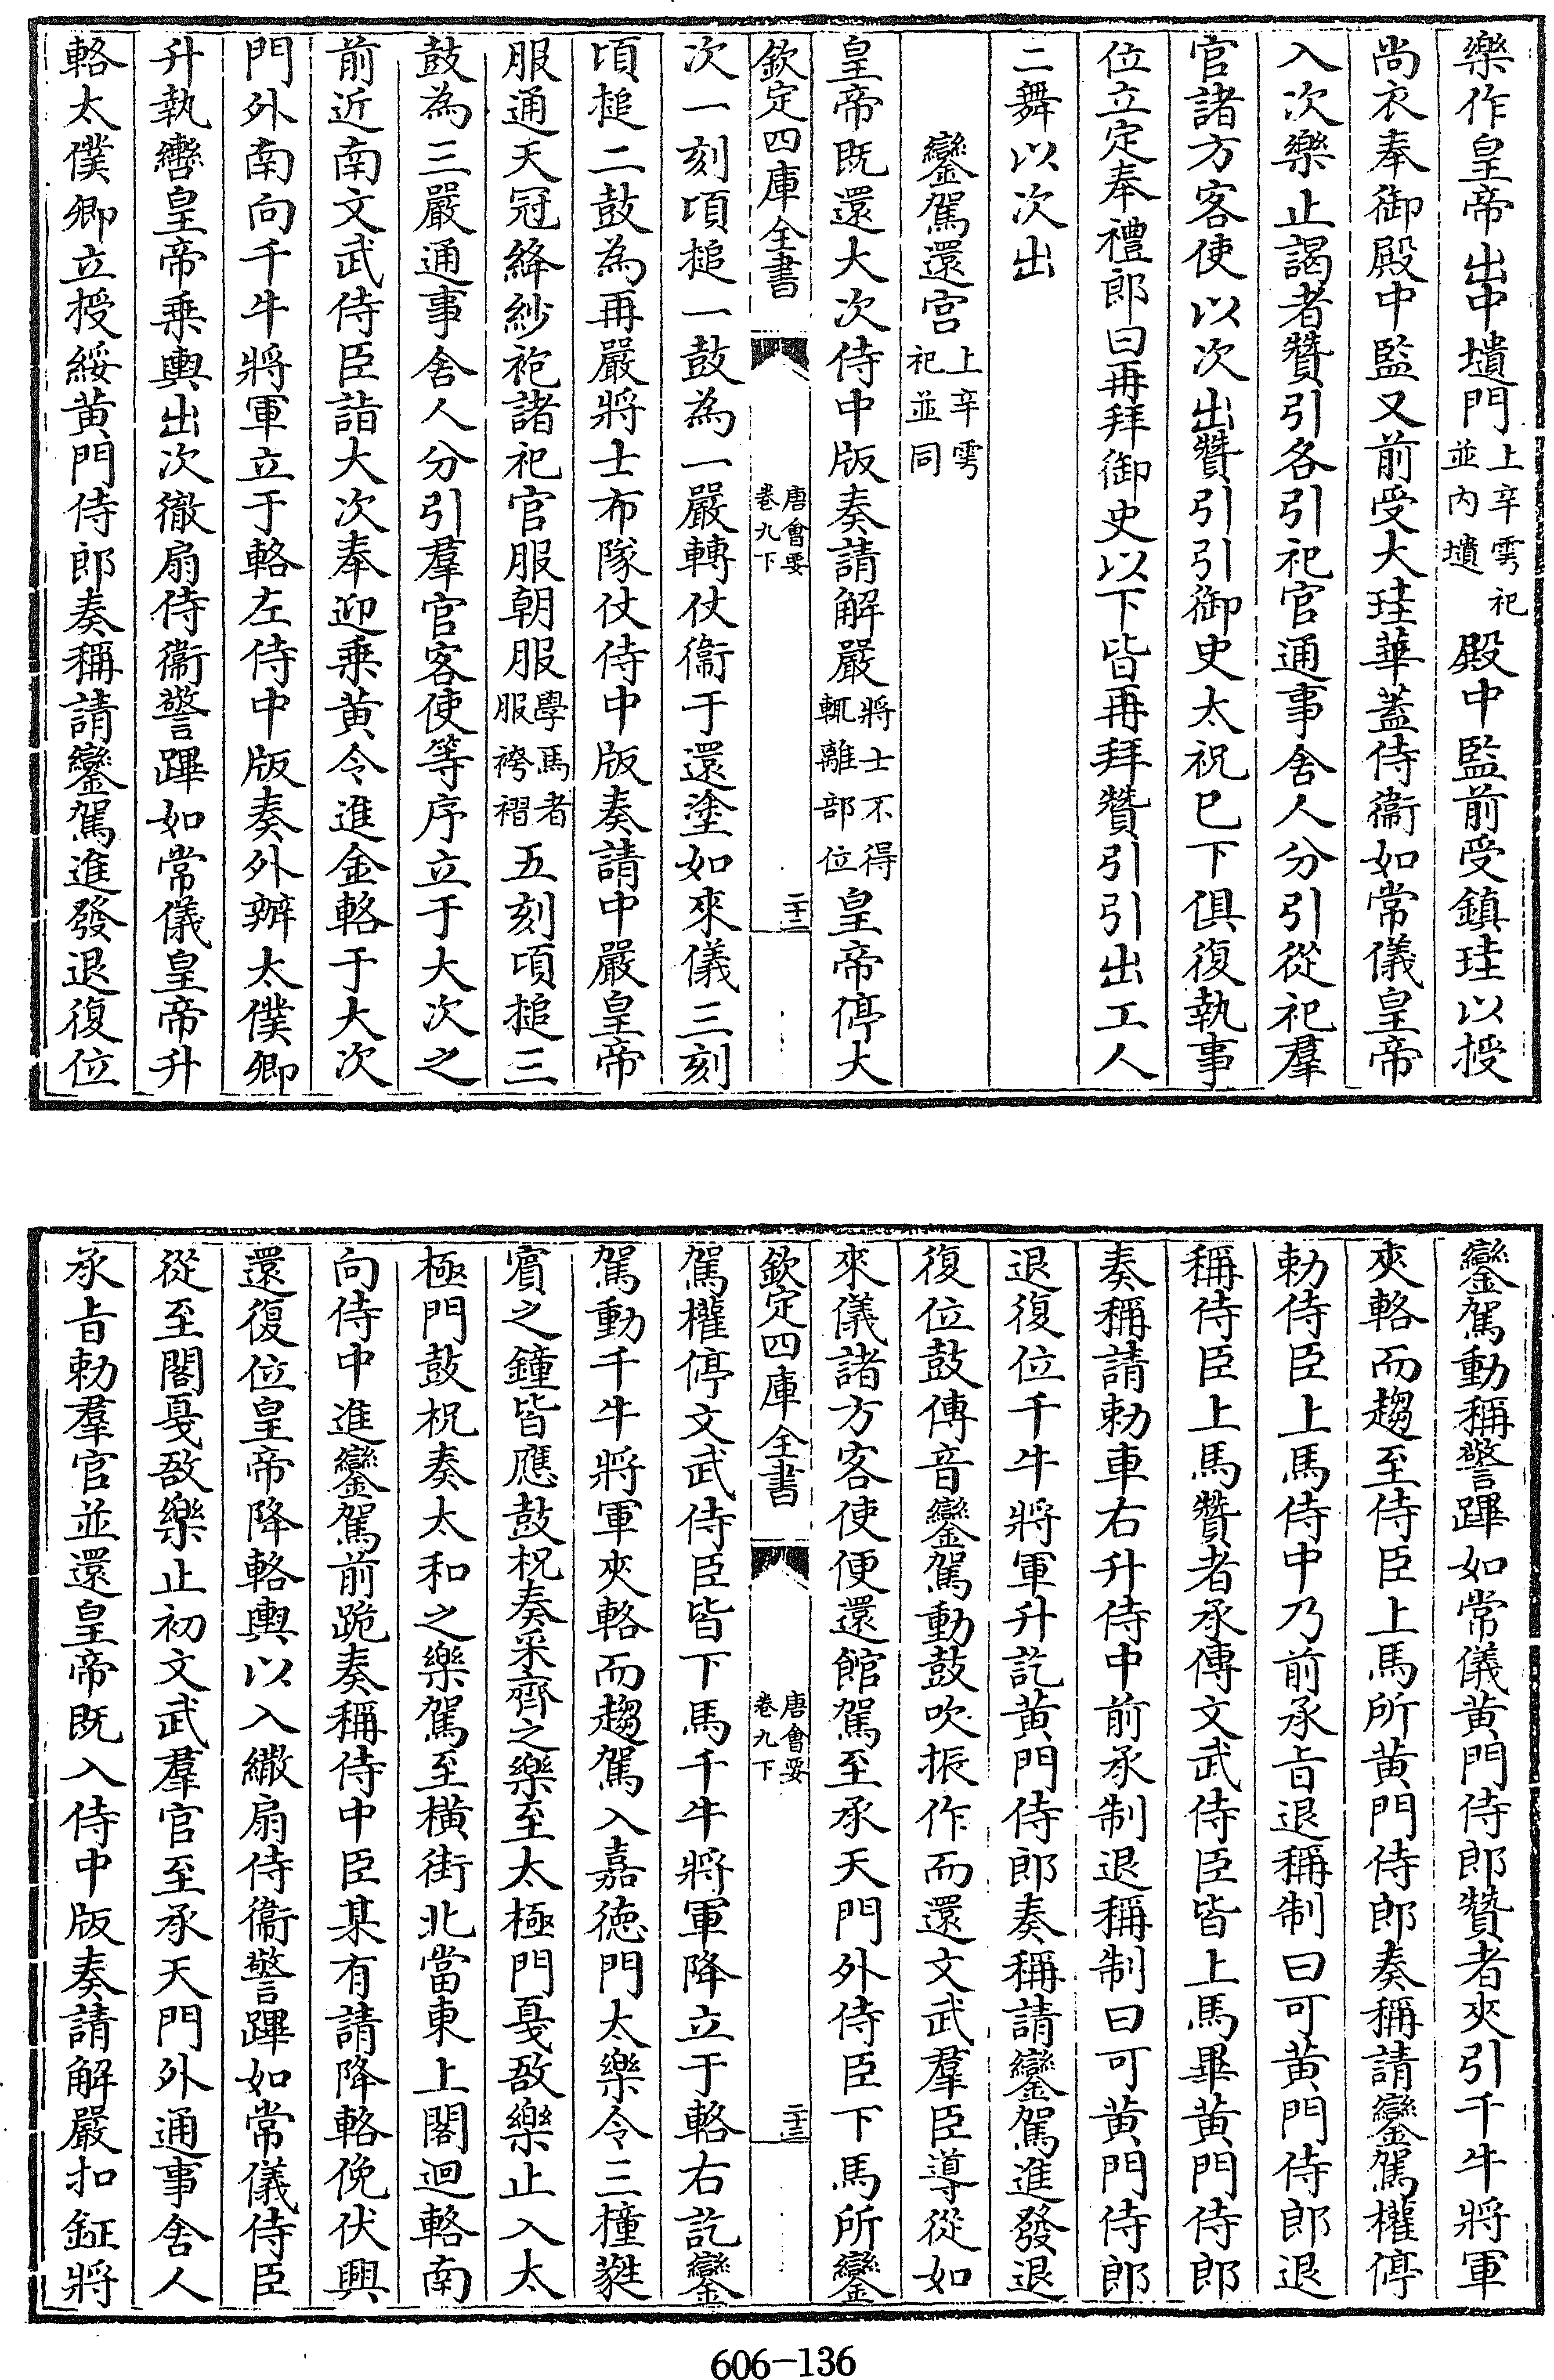 樂作皇帝出中壝門上辛雩祀並内壝殿中監前受鎮珪以授
尚衣奉御殿中監又前受大珪華蓋侍衞如常儀皇帝
入次樂止謁者贊引各引祀官通事舍人分引從祀羣
官諸方客使以次出贊引引御史太祝已下俱復執事
位立定奉禮郎曰再拜御史以下皆再拜贊引引出工人
二舞以次出
鑾駕還宫上辛雩祀並同
皇帝既還大次侍中版奏請解嚴將士不得輒離部位皇帝停大
欽定四庫全書
唐會要
卷九下
二十二
次一刻頃槌一鼓為一嚴轉仗衞于還塗如來儀三刻
頃槌二鼓為再嚴將士布隊仗侍中版奏請中嚴皇帝
服通天冠絳紗袍諸祀官服朝服學馬者服袴褶五刻頃槌三
鼓為三嚴通事舍人分引羣官客使等序立于大次之
前近南文武侍臣詣大次奉迎乗黄令進金輅于大次
門外南向千牛將軍立于輅左侍中版奏外辦太僕卿
升執轡皇帝乗輿出次徹扇侍衞警蹕如常儀皇帝升
輅太僕卿立授綏黄門侍郎奏稱請鑾駕進發退復位
鑾駕動稱警蹕如常儀黄門侍郎贊者夾引千牛將軍
夾輅而趨至侍臣上馬所黄門侍郎奏稱請鑾駕權停
勅侍臣上馬侍中乃前承㫖退稱制曰可黄門侍郎退
稱侍臣上馬贊者承傳文武侍臣皆上馬畢黄門侍郎
奏稱請勅車右升侍中前承制退稱制曰可黄門侍郎
退復位千牛將軍升訖黄門侍郎奏稱請鑾駕進發退
復位鼓傳音鑾駕動鼓吹振作而還文武羣臣導從如
來儀諸方客使便還館駕至承天門外侍臣下馬所鑾
欽定四庫全書
唐會要
卷九下
二十三
駕權停文武侍臣皆下馬千牛將軍降立于輅右訖鑾
駕動千牛將軍夾輅而趨駕入嘉徳門太樂令三撞蕤
賓之鐘皆應鼓柷奏采齊之樂至太極門戞敔樂止入太
極門鼓柷奏太和之樂駕至横街北當東上閣迴輅南
向侍中進鑾駕前跪奏稱侍中臣某有請降輅俛伏興
還復位皇帝降輅輿以入繖扇侍衞警蹕如常儀侍臣
從至閣戞敔樂止初文武羣官至承天門外通事舍人
承㫖勅羣官並還皇帝既入侍中版奏請解嚴扣鉦將
606-136